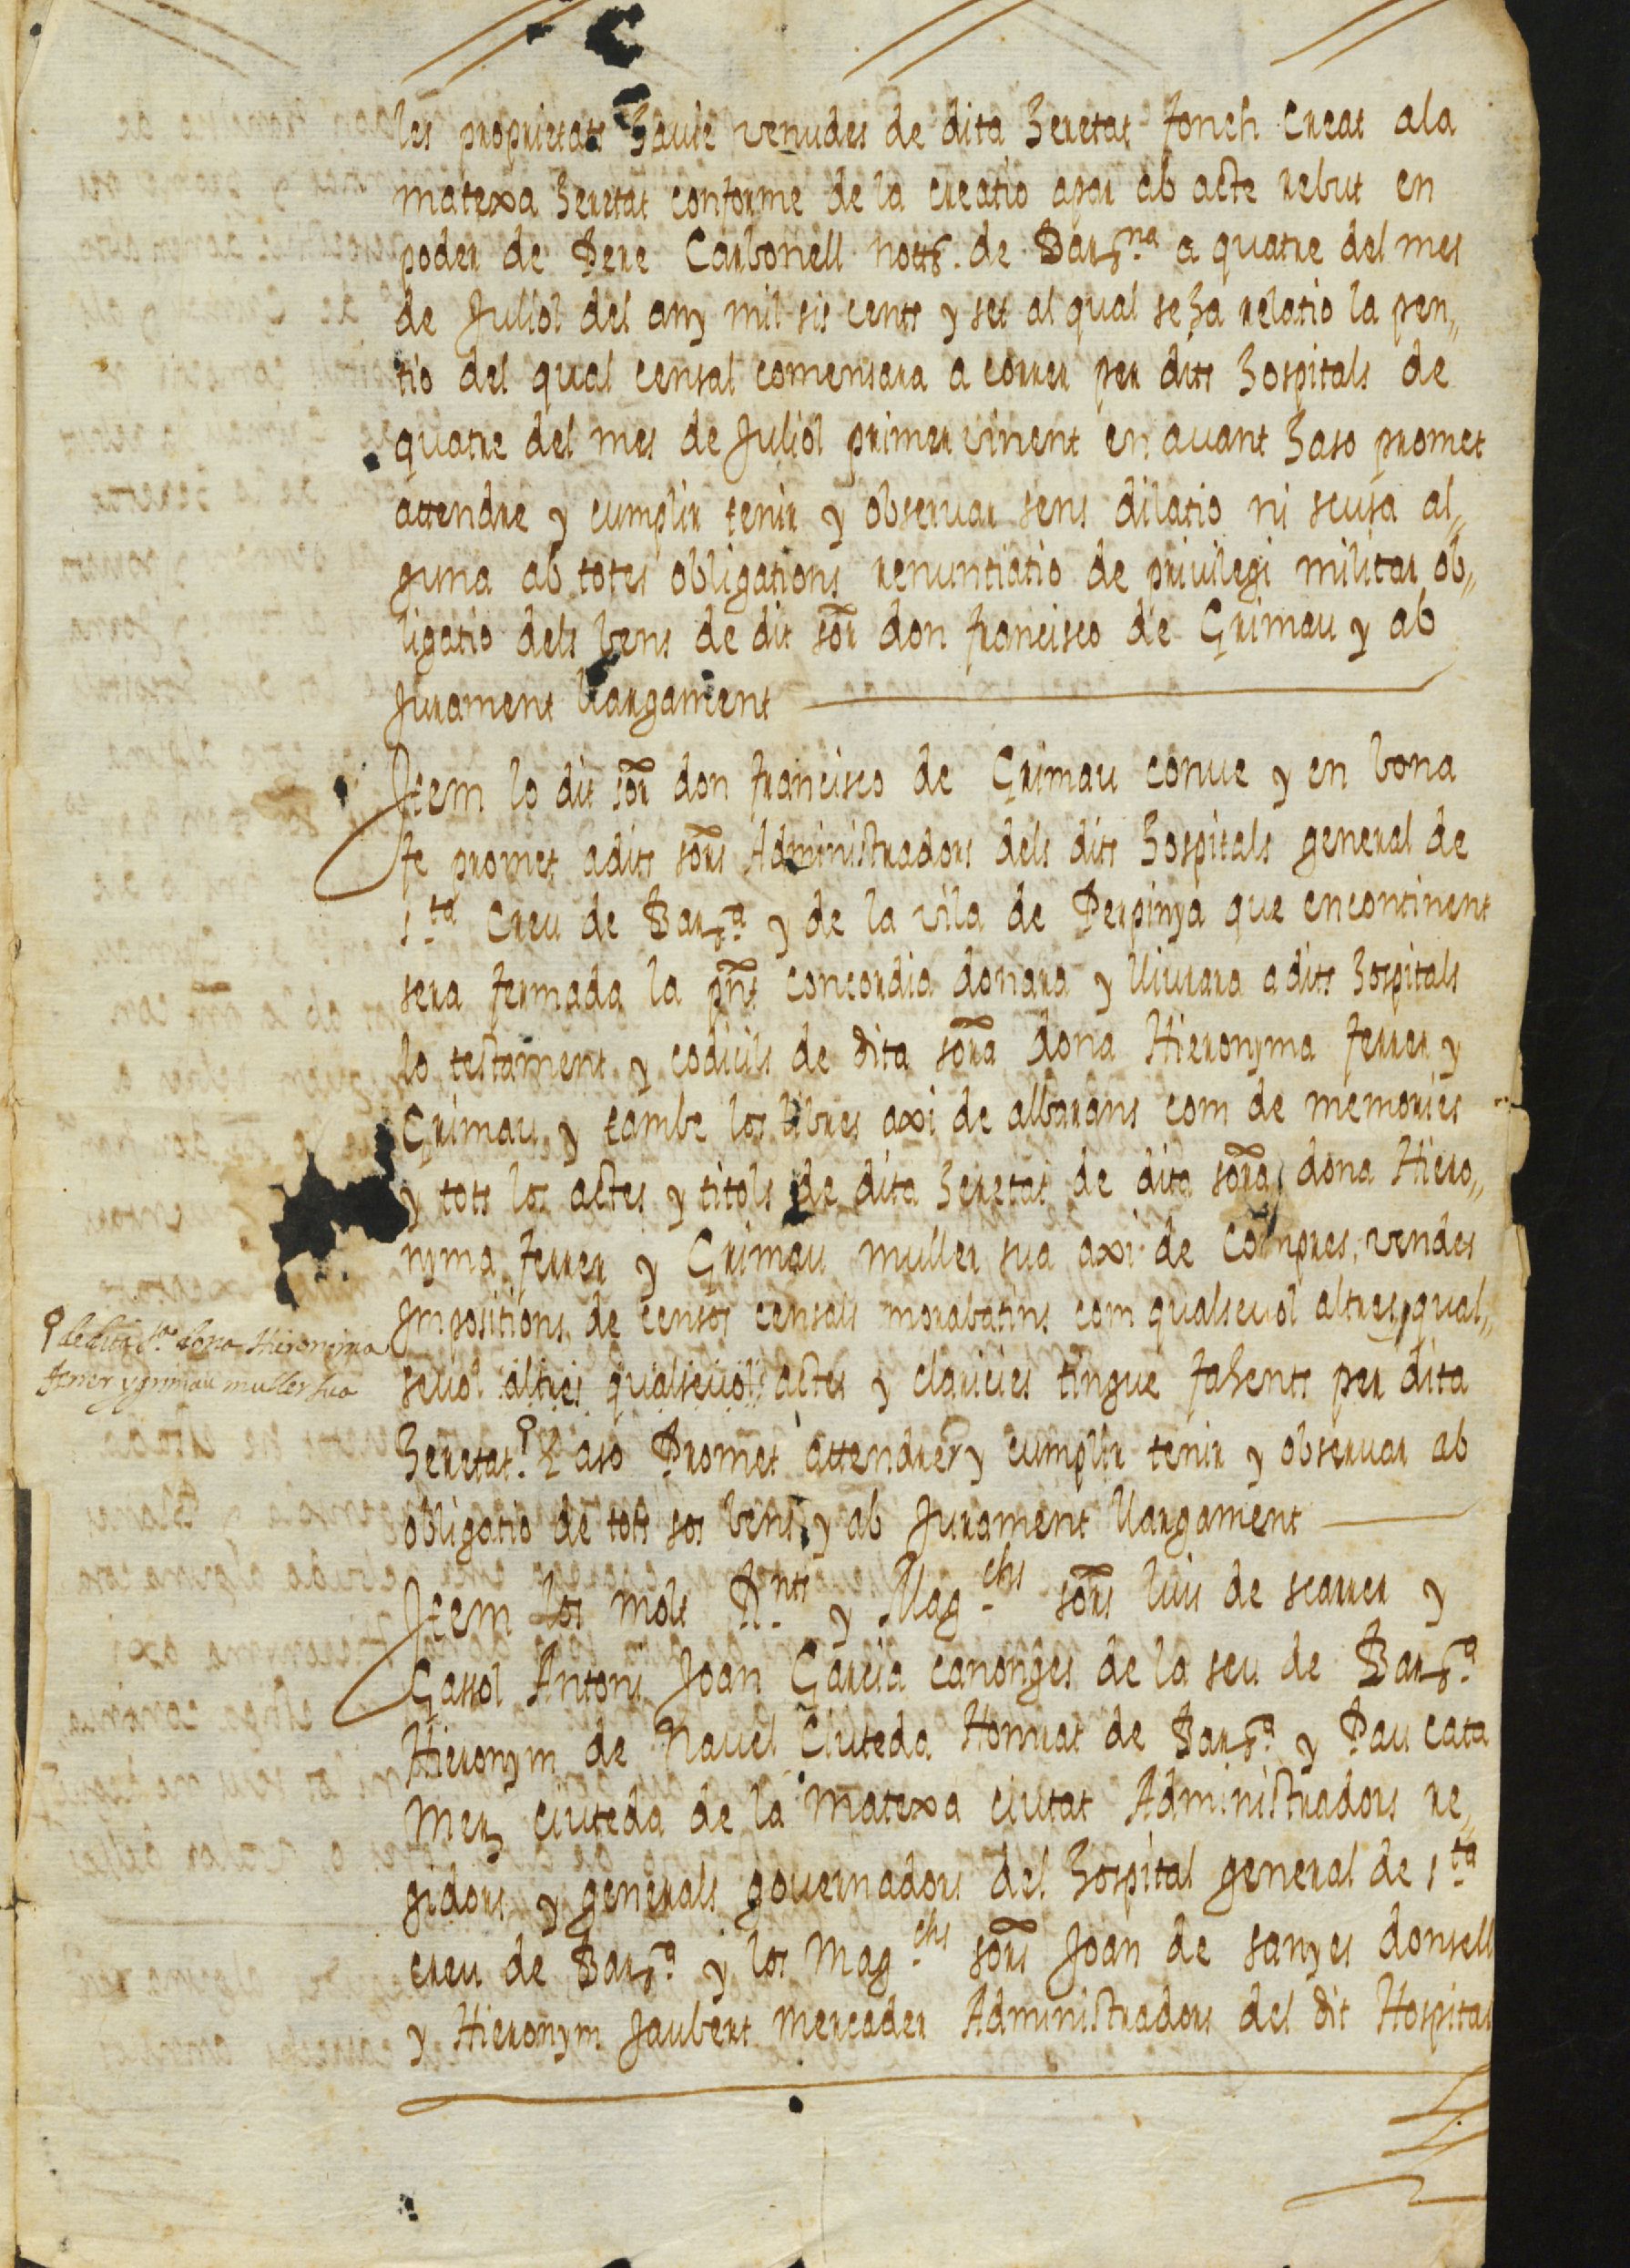 les proprietats havie venudes de dita heretat fonch creat ala
matexa heretat conforme de la creatio apar ab acte rebut en
poder de Pere Carbonell nottr. de Barna a quatre del mes
de Juliol del any mil sis cents y set al qual se ha relatio la pen,,
tio del qual censal comensara a correr per dits hospitals de
quatre del mes de Juliol primer vinent en avant haso promet
attendre y cumplir tenir y observar sens dilatio ni scusa al,,
guna ab totes obligations renuntiatio de privilegi militar ob,,
ligatio dels bens de dit sor don francisco de Grimau y ab
Jurament llargament
Item lo dit sor don francisco de Grimau conve y en bona
fe promet adits sors Administradors dels dits hospitals general de
sta Creu de Bara y de la vila de Perpinya que encontinent
sera fermada la pnt concordia donara y lliurara adits hospitals
lo testament y codicils de dita sora dona Hieronyma ferrer y
Grimau y tambe los llibres axi de albarans com de memories
y tots los actes y titols de dita heretat de dita sora dona Hiero,,
nyma ferrer y Grimau muller sua axi de compres, vendes
Impositions de censos censals morabatins com qualsevol altres qual,,
sevol altres qualsevols actes y claricies tingue fahents per dita
heretat. E aso Promet attendrer y cumplir tenir y observar ab
obligatio de tots sos bens y ab Jurament llargament
de dita sra dona Hieronima
ferrer y grimau muller sua
Item los molt Rnts y Magchs sors luis de scarrer y
Gassol Antoni Joan Garcia canonges de la seu de Bara
Hieronym de Navel Ciuteda Honrat de Bara y Pau cata
Mer ciuteda de la matexa ciutat Administradors re,,
gidors y generals governadors del hospital general de sta
creu de Bara y los Magchs sors Joan de sanyes donsell
y Hieronym Jaubert mercader Administradors del dit Hospital